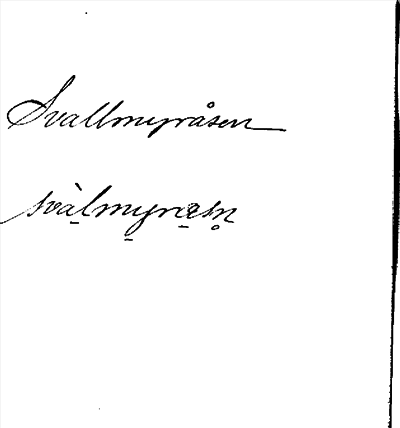 Svallmyråsen
svàl̠my̠ræ̠sn̥